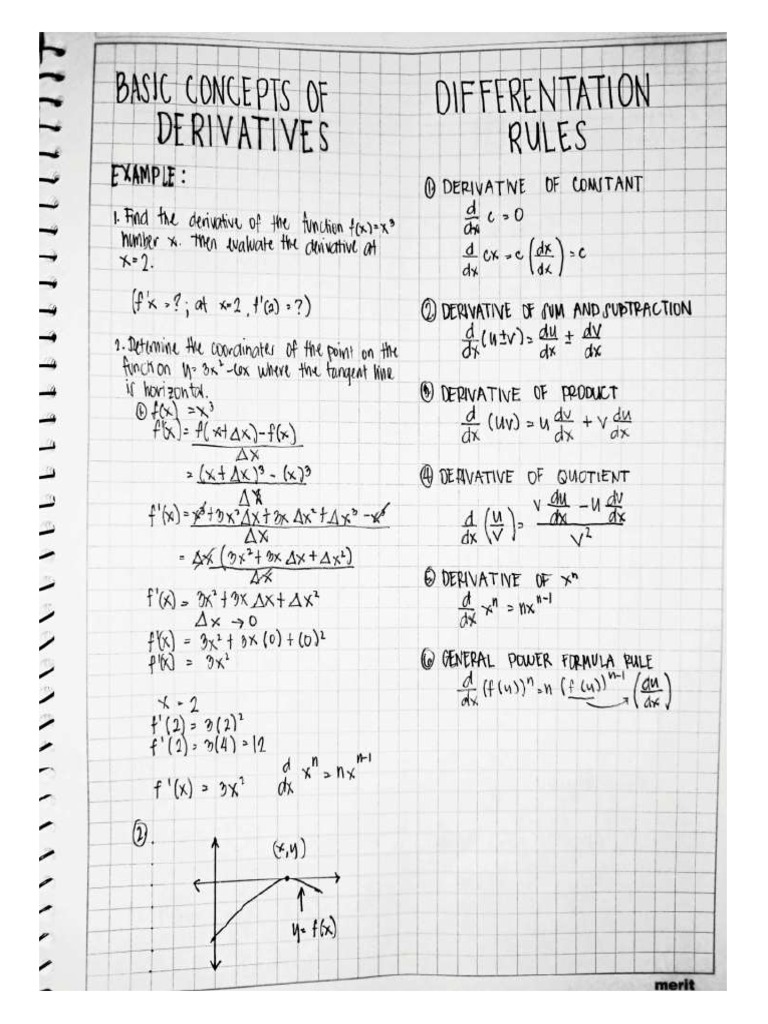 BASIC CONCEPTS OF
DERIVATIVES
EXAMPLE:
1. Find the derivative of the function f(x)=x³
number x. then evaluate the derivative at
x=2.
(f'x = ?; at x=2, f'(2) = ?)
2. Determine the coordinates of the point on the
function y= 3x²-6x where the tangent line
is horizontal.
① f(x) = x³
f'(x) = f(x+Δx)-f(x)
Δx
= (x+Δx)³ - (x)³
Δx
f'(x) = x³+3x²Δx+3xΔx²+Δx³-x³
Δx
= Δx (3x²+3xΔx+Δx²)
Δx
f'(x) = 3x²+3xΔx+Δx²
Δx → 0
f'(x) = 3x²+3x(0)+(0)²
f'(x) = 3x²
x = 2
f'(2) = 3(2)²
f'(2) = 3(4) = 12
f'(x) = 3x² d/dx xⁿ = nxⁿ⁻¹
②.
(x,y)
y= f(x)
DIFFERENTATION
RULES
① DERIVATIVE OF CONSTANT
d/dx c = 0
d/dx cx = c (dx/dx) = c
② DERIVATIVE OF SUM AND SUBTRACTION
d/dx (u±v) = du/dx ± dv/dx
③ DERIVATIVE OF PRODUCT
d/dx (uv) = u dv/dx + v du/dx
④ DERIVATIVE OF QUOTIENT
d/dx (u/v) = v du/dx - u dv/dx
v²
⑤ DERIVATIVE OF xⁿ
d/dx xⁿ = nxⁿ⁻¹
⑥ GENERAL POWER FORMULA RULE
d/dx (f(u))ⁿ = n (f(u))ⁿ⁻¹ → (du/dx)
merit